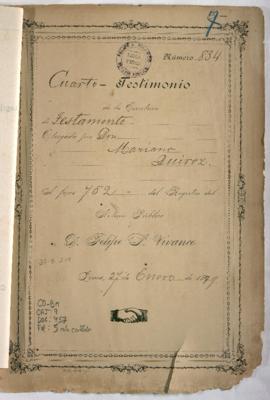 9
Número 534
Cuarto Testimonio
de la Escritura
de Testamento
Otorgada por Don
Mariano
Quiroz
al fojas 752 del Registro del
Notario Público
D. Felipe S. Vivanco
Lima, 27 de Enero de 1
CO-BM
CAJ: 9
DOC: 957
FOL: 5